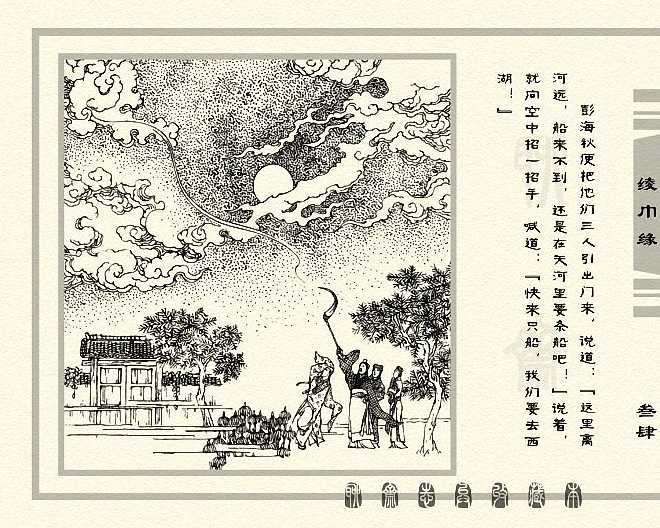 彭海秋便把他们三人引出门来，说道：“这里离
河远，船来不到，还是在天河里要条船吧！”说着，
就向空中招一招手，喊道：“快来只船，我们要去西
湖！”
绫巾缘
叁肆
聊斋志异收藏本